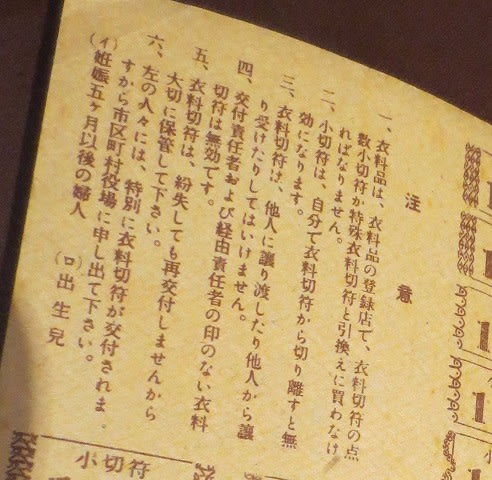 注意
一、衣料品は、衣料品の登録店で、衣料切符の点
数小切符か特殊衣料切符と引換えに買わなけ
ればなりません。
二、小切符は、自分で衣料切符から切り離すと無
効になります。
三、衣料切符は、他人に譲り渡したり他人から譲
り受けたりしてはいけません。
四、交付責任者および経由責任者の印のない衣料
切符は無効です。
五、衣料切符は、紛失しても再交付しませんから
大切に保管して下さい。
六、左の人々には、特別に衣料切符が交付されま
すから市区町村役場に申し出て下さい。
(イ)妊娠五ヶ月以後の婦人 (ロ)出生兒
小切符